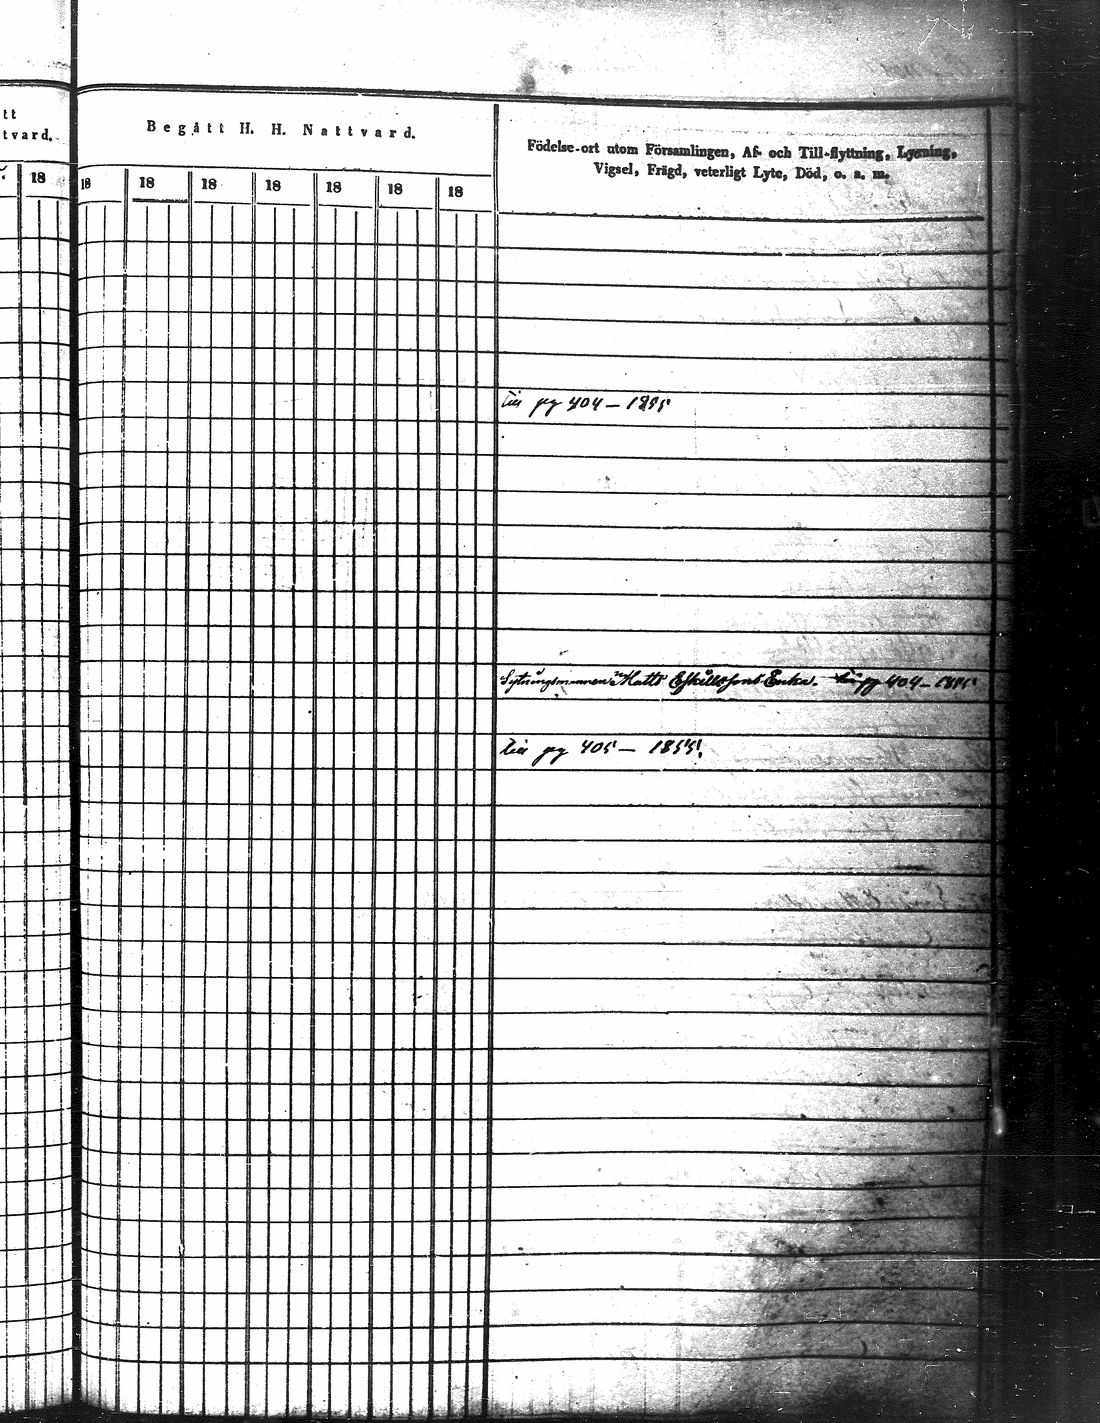 tt
tvard.
18
Begått H. H. Nattvard.
18 18 18 18 18 18 18
Födelse-ort utom Församlingen, Af- och Till-flyttning, Lysning,
Vigsel, Frägd, veterligt Lyte, Död, o. a. m.
pg 404 — 1855
Sytningsmannen Matts Eskillssons Enka. pg 404 — 1855
pg 405 — 1855